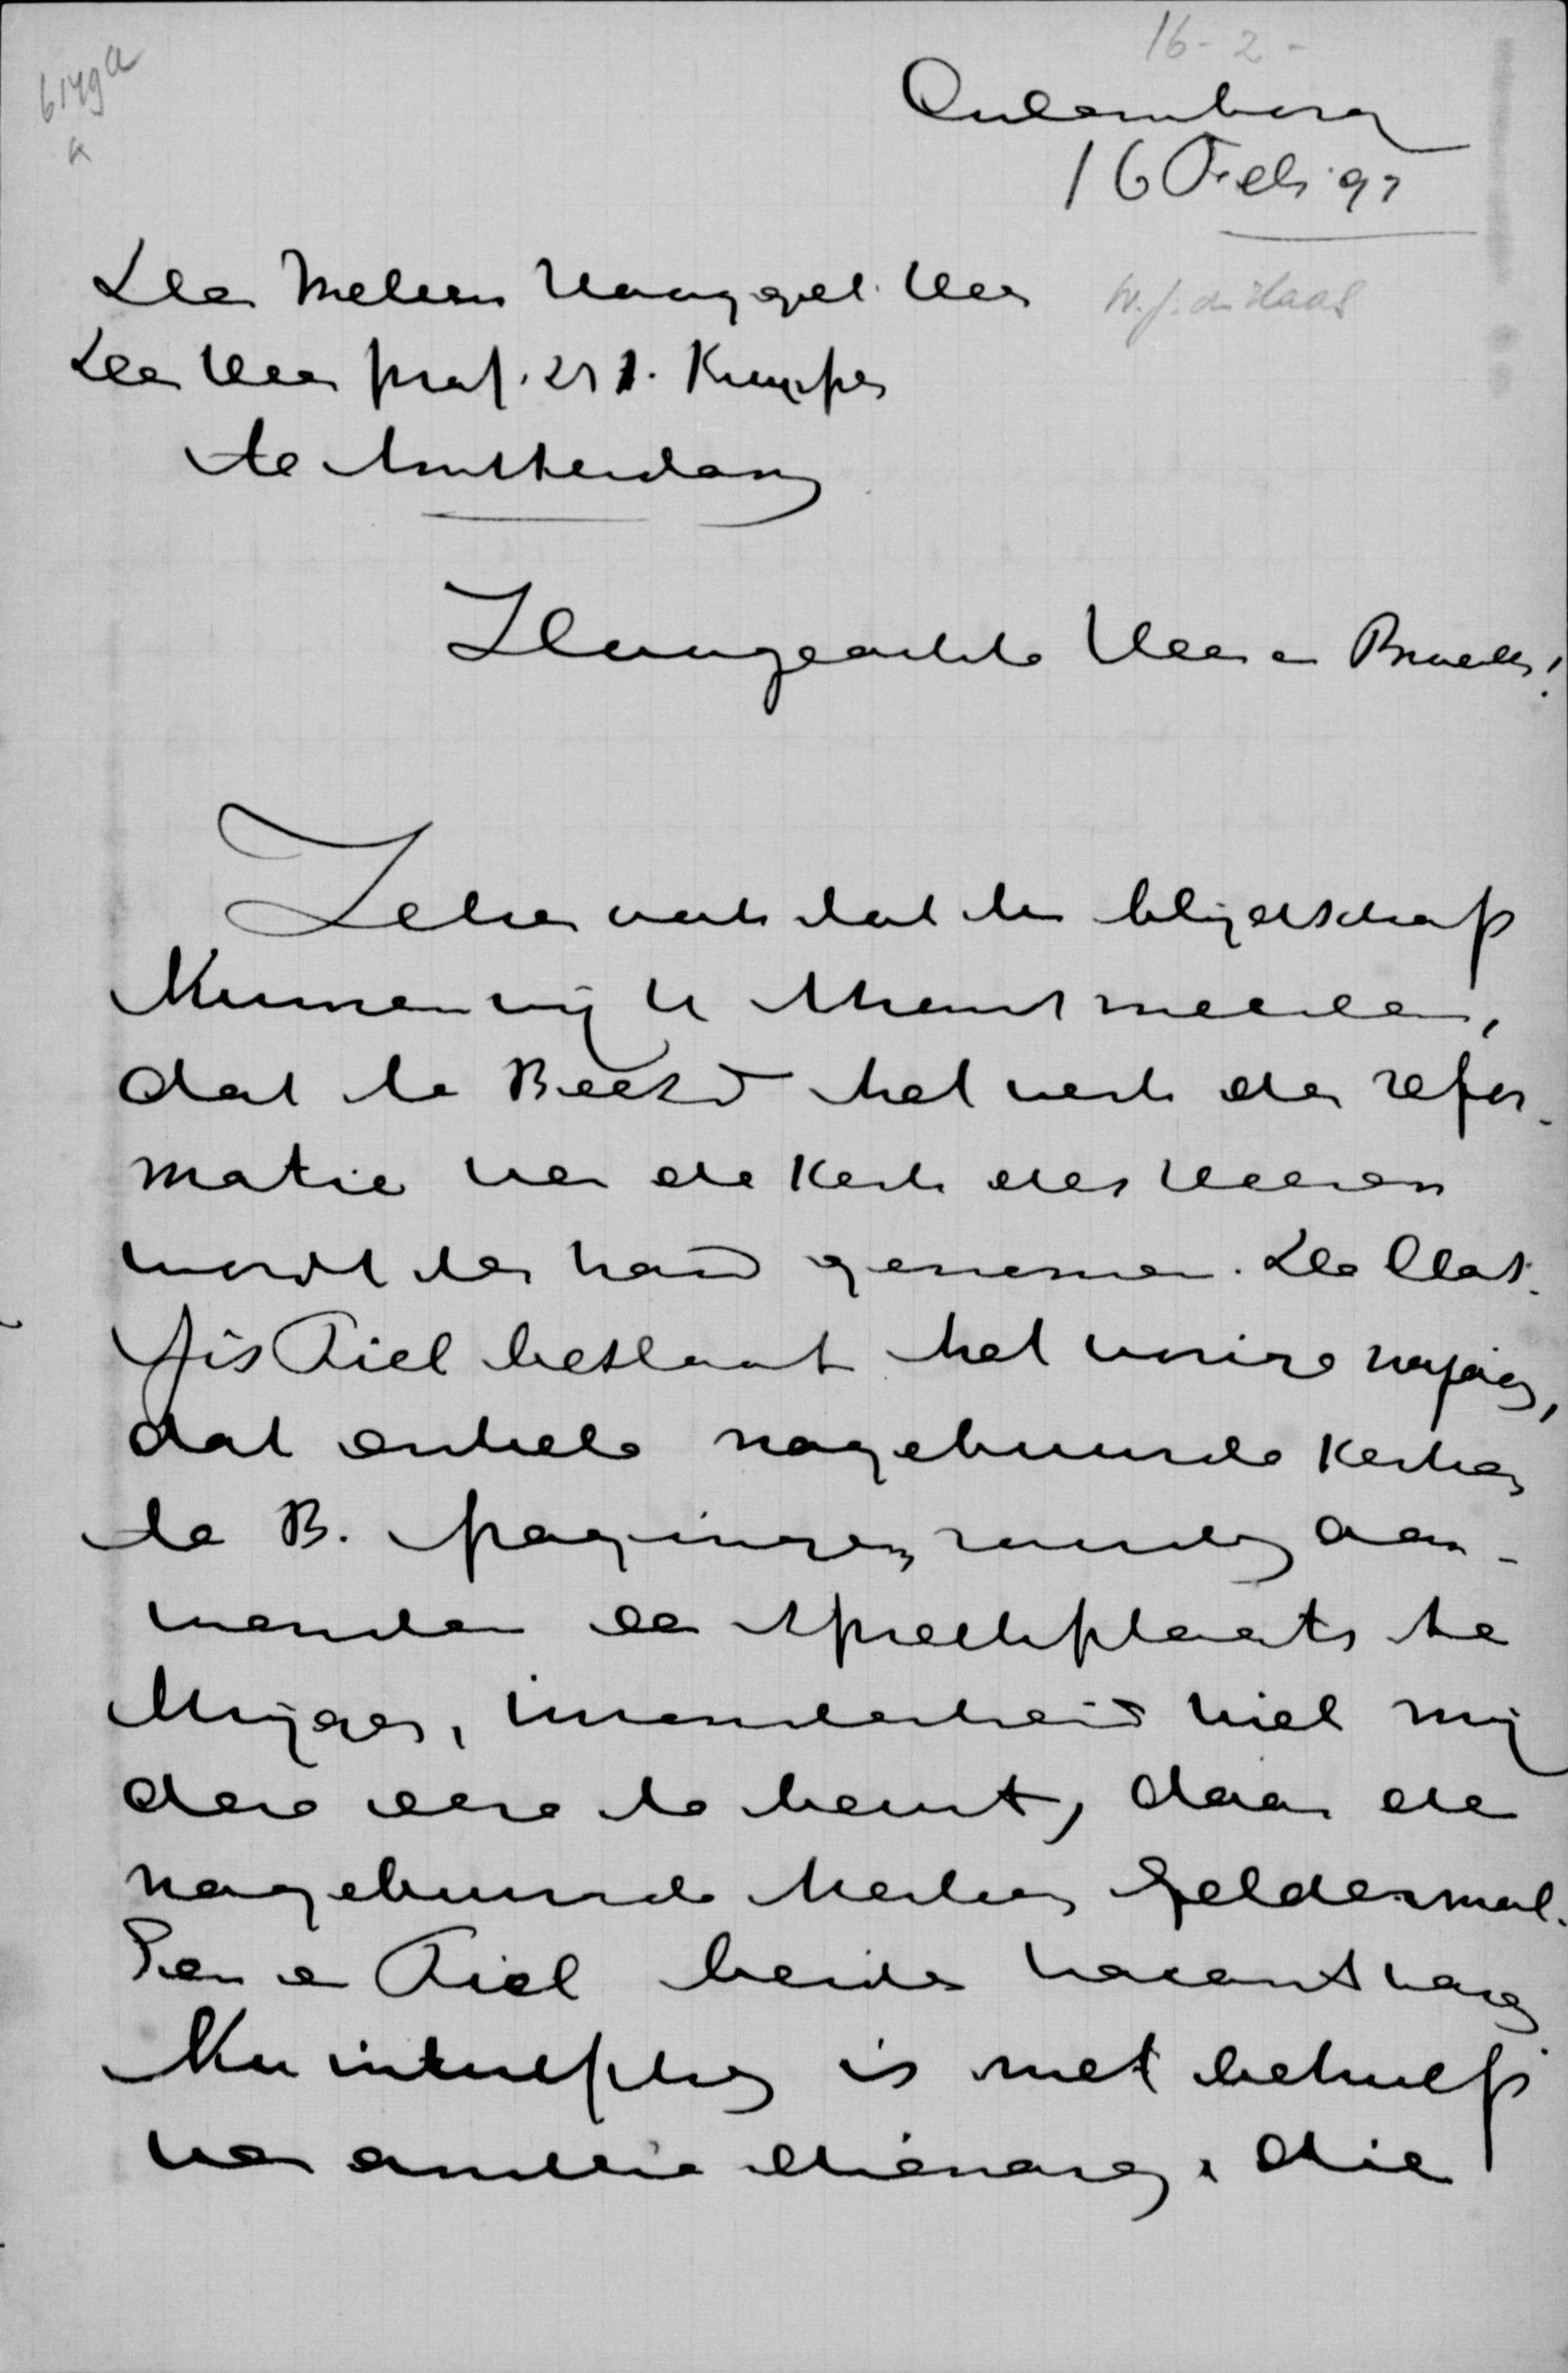 16-2-
6149a
a
Culemborg
16 Feb. 97
Den Weleerw. Hooggel. Heer
W. J. de Haas
Den Heer Prof. Dr A. Kuyper
te Amsterdam
Hooggeachte Heer en Broeder!
Zeker ook dat ter blijdschap
kunnen wij U thans melden,
dat te Beesd het werk der refor-
matie van de Kerk des Heeren
wordt ter hand genomen. De Clas-
sis Tiel besloot het vorige najaar,
dat enkele nageburige kerken
te B. pogingen zouden aan-
wenden een spreekplaats te
krijgen, inzonderheid viel mij
deze eere te beurt, daar de
nageburige kerken Geldermal-
sen en Tiel beide vacant waren
Nu intusschen is met behulp
van andere dienaren, die